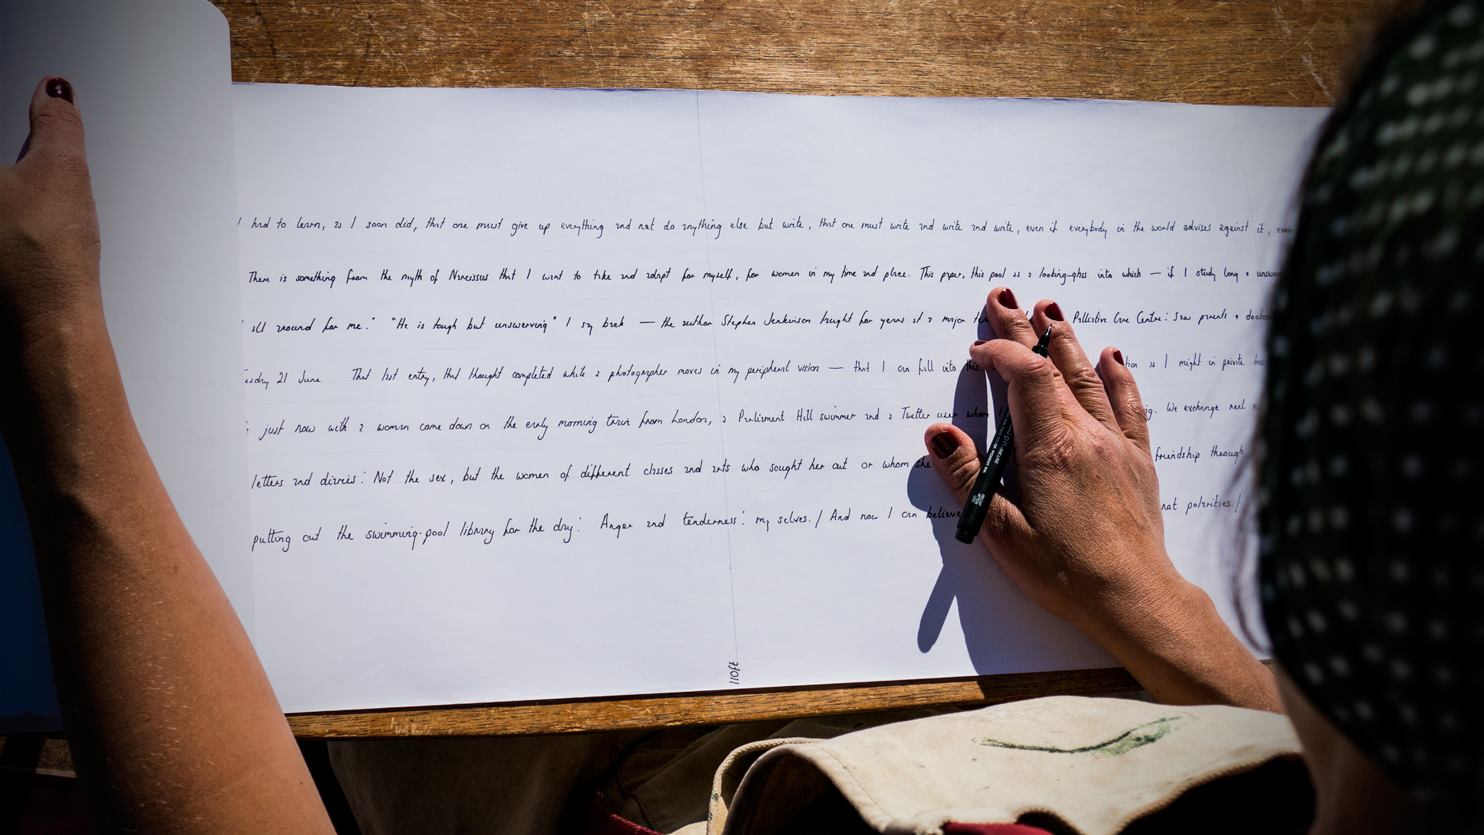 I had to learn, as I soon did, that one must give up everything and not do anything else but write, that one must write and write and write, even if everybody in the world advises against it, even
There is something from the myth of Narcissus that I want to take and adapt for myself, for women in my time and place. This paper, this pool as a looking-glass into which — if I study long &
all around for me." "He is tough but unswerving" I say back — the author Stephen Jenkinson taught for years at a major Palliative Care Centre: saw parents &
21 June That last entry, that thought completed while a photographer moves in my peripheral vision — that I can fall into this as I might in private
just now with a woman came down on the early morning train from London, a Parliament Hill swimmer and a Twitter user whom We exchange
letters and diaries: Not the sex, but the women of different classes and arts who sought her out or whom she friendship through
putting out the swimming-pool library for the day: Anger and tenderness: my selves. / And now I can believe not polarities. /
110ft